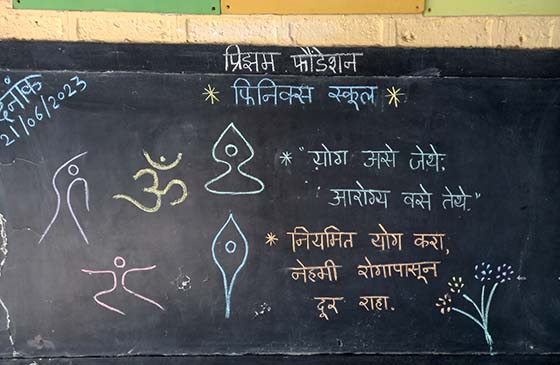 प्रिझम फौंडेशन
फिनिक्स स्कूल
दिनांक
21/06/2023
ॐ
"योग असे जेथे,
आरोग्य वसे तेथे."
नियमित योग करा,
नेहमी रोगापासून
दूर राहा.